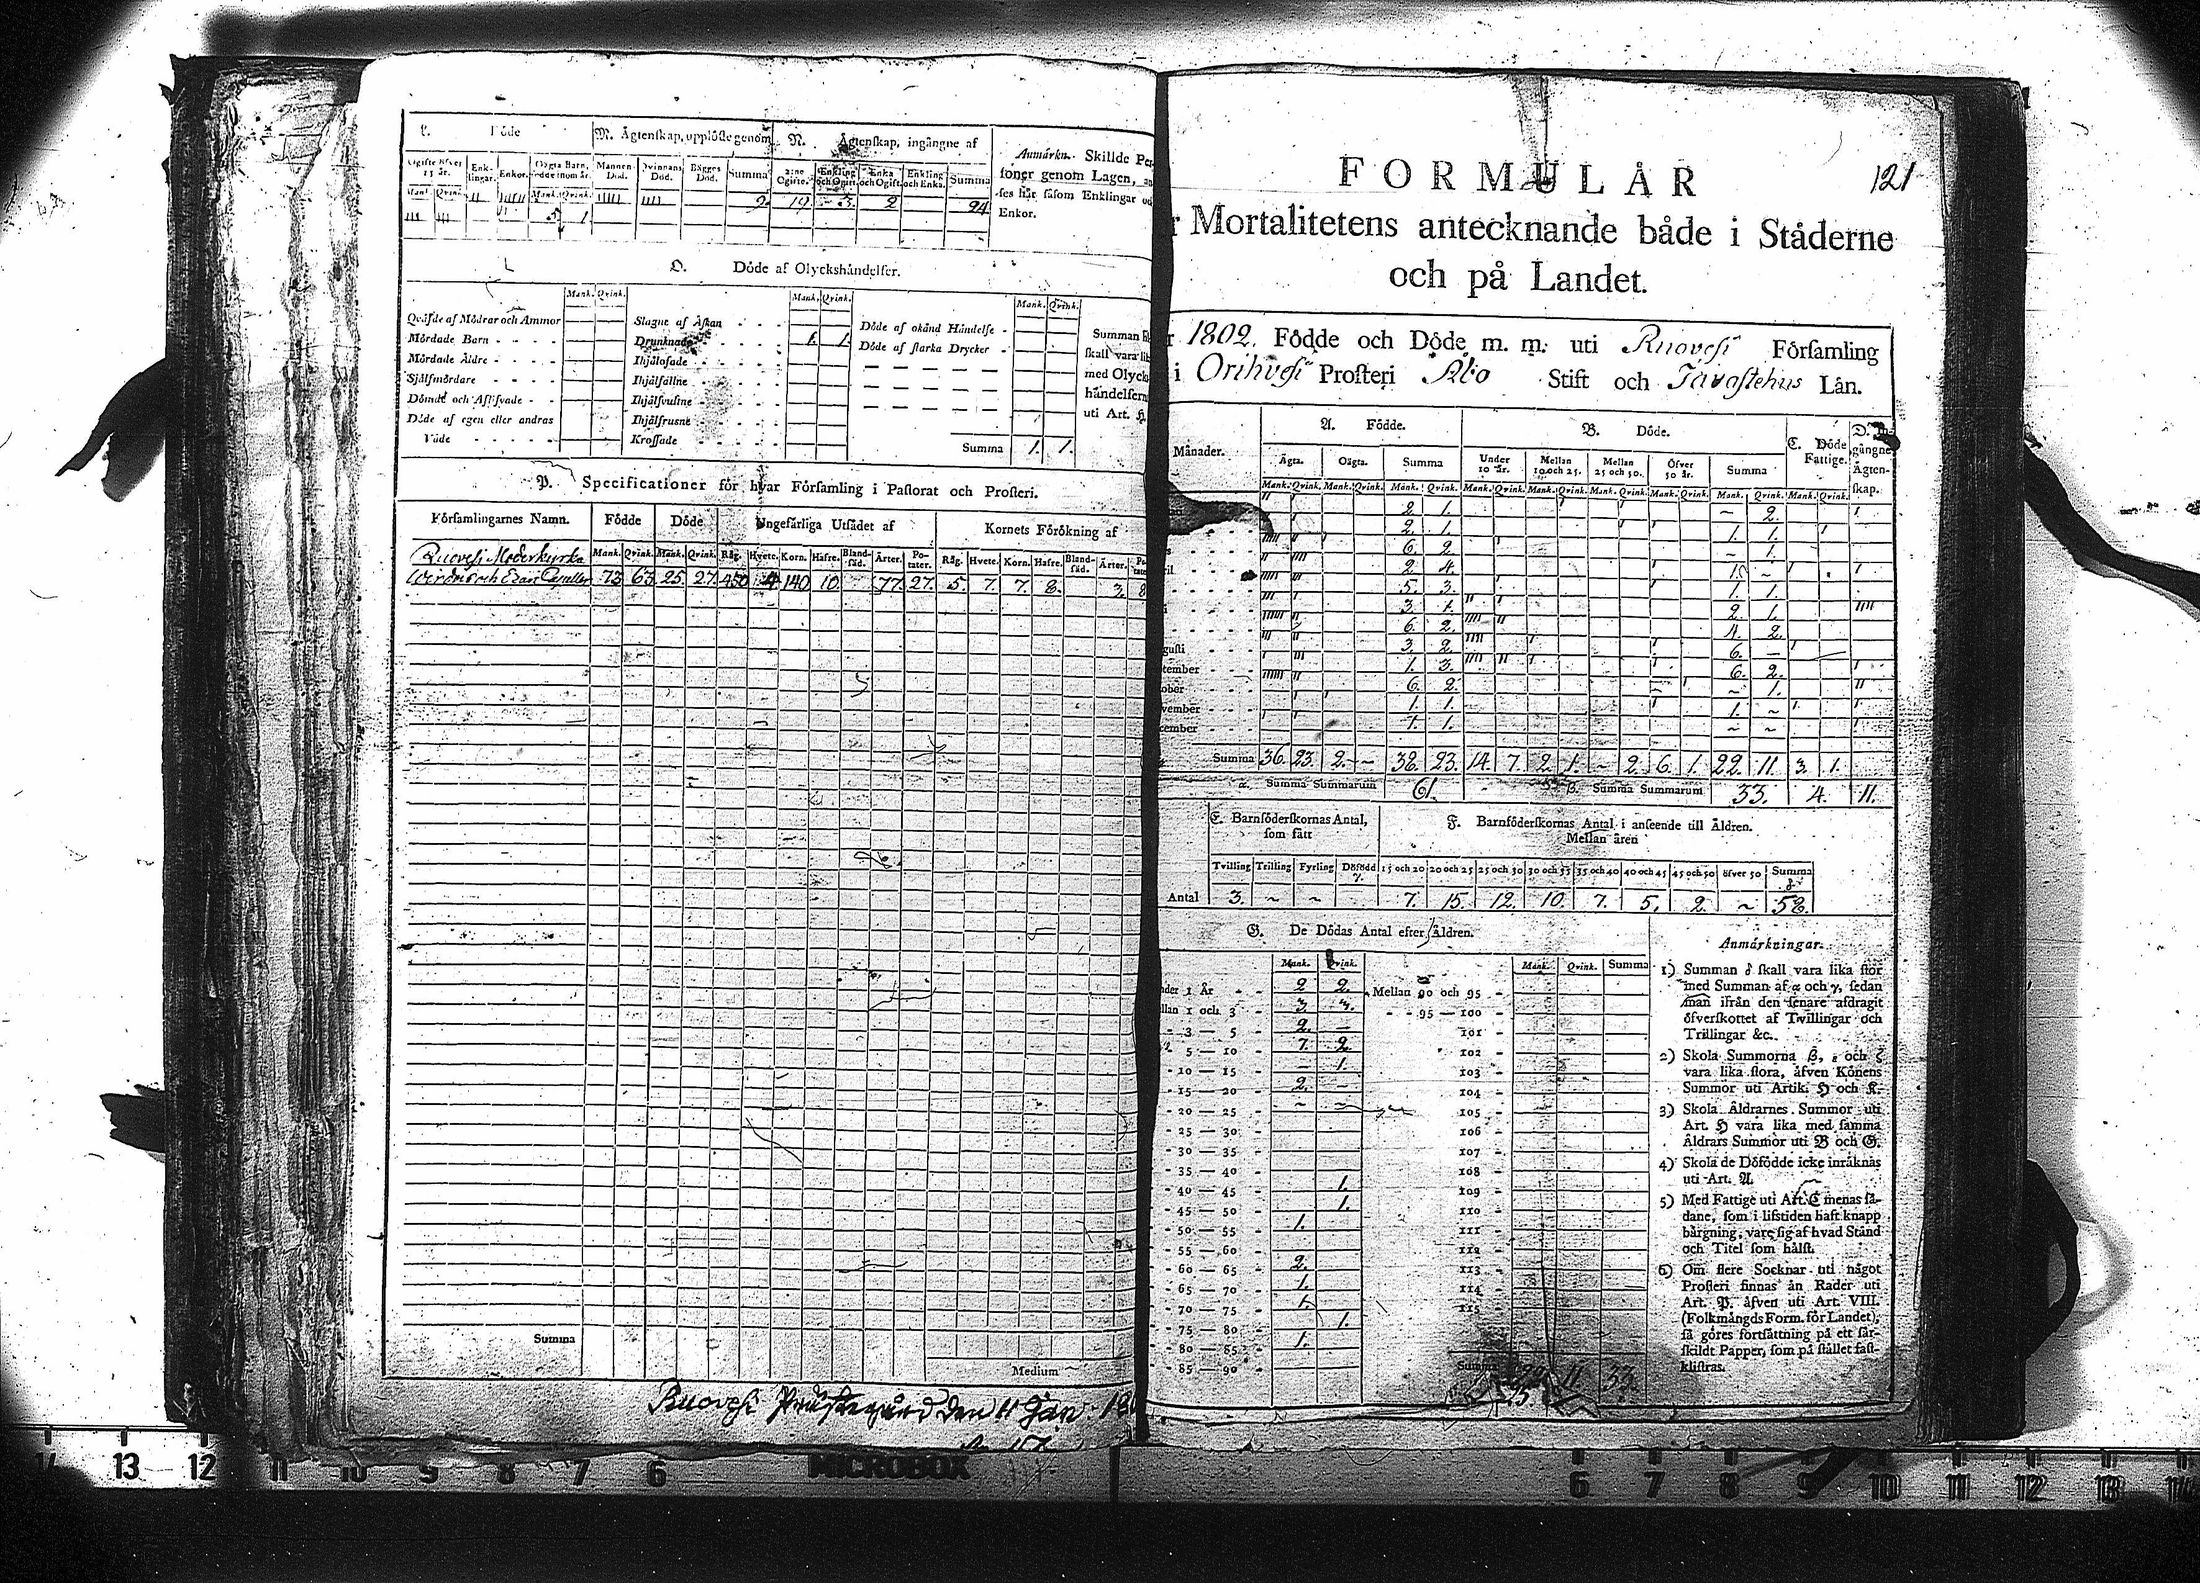 L. Döde
M. Ägtenskap, upplöste genom
N. Ägtenskap, ingångne af
Ogifte öfver 15 år.
Enk-lingar.
Enkor.
Oägta Barn, födde inom år.
Mannens Död.
Qvinnans Död.
Bägges Död.
Summa
2:ne Ogifte.
Enkling och Ogift.
Enka och Ogift.
Enkling och Enka.
Summa
Mank. Qvink. Mank. Qvink.
9. 19 3. 2 24
Anmärkn. Skillde Per-
soner genom Lagen, an-
ses här såsom Enklingar och
Enkor.
O. Döde af Olyckshändelser.
Mank. Qvink.
Qväfde af Mödrar och Ammor
Mördade Barn
Mördade Äldre
Självmördare
Dömde och Aflifvade
Döde af egen eller andras
Våde
Mank. Qvink.
Slagne af Åskan
Drunknade 1. 1.
Ihjälosade
Ihjälfallne
Ihjälsvultne
Ihjälfrusne
Krossade
Mank. Qvink.
Döde af okänd Händelse
Döde af starka Drycker
Summa 1. 1.
Summan
skall vara lik
med Olycks-
händelserna
uti Art. H.
P. Specificationer för hvar Församling i Pastorat och Prosteri.
Församlingarnes Namn. Födde Döde Ungefärliga Utsädet af Kornets Förökning af
Mank. Qvink. Mank. Qvink. Råg. Hvete. Korn. Hafre. Bland-säd. Ärter. Po-tater. Råg. Hvete. Korn. Hafre. Bland-säd. Ärter.
Ruovesi Moderkyrka
73 63 25. 27. 450 4 140 10. 77. 27. 5. 7. 7. 8. 3. 8
Summa
Medium
Ruovesi Prästegård den 11 Jan. 18
MICROBOX
14 13 12 11 10 9 8 7 6
FORMULÄR
121
Mortalitetens antecknande både i Städerne
och på Landet.
1802. Födde och Döde m. m. uti Ruovesi Församling
i Orihvesi Prosteri Åbo Stift och Tavastehus Län.
Månader.
A. Födde.
B. Döde.
C. Döde Fattige.
D. In-gångne Ägten-skap.
Ägta. Oägta. Summa
Under 10 år. Mellan 10 och 25. Mellan 25 och 50. Öfver 50 år. Summa
Mank. Qvink. Mank. Qvink. Mank. Qvink. Mank. Qvink. Mank. Qvink. Mank. Qvink. Mank. Qvink. Mank. Qvink. Mank. Qvink.
2. 1. ~ 2.
2. 1. 1. 1.
6. 2. ~ 1.
ril 2 4. 1. ~
5. 3. 1. 1.
3. 1. 2. 1.
6. 2. 4. 2
gusti 3. 2. 6. ~
tember 1. 3. 6. 2.
ober 6. 2. ~ 1.
vember 1. 1. 1. ~
cember 1. 1. ~ ~
Summa 36. 23. 2. ~ 38. 23. 14. 7. 2. 1. ~ 2. 6. 1. 22. 11. 3. 1.
α. Summa Summarum 61. β. Summa Summarum 33. 4. 11.
E. Barnföderskornas Antal,
som fått
F. Barnföderskornas Antal i anseende till Äldren.
Mellan åren
Tvilling Trilling Fyrling Dödfödd γ. 15 och 20 20 och 25 25 och 30 30 och 35 35 och 40 40 och 45 45 och 50 öfver 50 Summa δ
Antal 3. ~ ~ 7. 15. 12. 10. 7. 5. 2. ~ 58.
G. De Dödas Antal efter Äldren.
Mank. Qvink. Mank. Qvink. Summa
nder 1 År 2 2. Mellan 90 och 95
llan 1 och 3 3. 3. 95 — 100
3 — 5 2. ~ 101
5 — 10 7. 2 102
10 — 15 ~ 1. 103
15 — 20 2. ~ 104
20 — 25 ~ ~ 105
25 — 30 106
30 — 35 107
35 — 40 108
40 — 45 1. 109
45 — 50 1. 110
50 — 55 1. 111
55 — 60 112
60 — 65 2. 113
65 — 70 1. 114
70 — 75 1. 115
75 — 80 1.
80 — 85 1.
85 — 90
Summa 22 11 33.
Anmärkningar.
1) Summan δ skall vara lika stor
med Summan af α och γ, sedan
man ifrån den senare afdragit
öfverskottet af Tvillingar och
Trillingar &c.
2) Skola Summorna β, ε och ζ
vara lika stora, äfven Könens
Summor uti Artik. H och K.
3) Skola Äldrarnes Summor uti
Art. H vara lika med samma
Äldrars Summor uti B och G.
4) Skola de Dödfödde icke inräknas
uti Art. A.
5) Med Fattige uti Art. C menas så-
dane, som i lifstiden haft knapp
bärgning, vare sig af hvad Stånd
och Titel som hälst.
6) Om flere Socknar uti något
Prosteri finnas än Rader uti
Art. P. äfven uti Art. VIII.
(Folkmängds Form. för Landet),
så göres fortsättning på ett sär-
skildt Papper, som på stället fast-
klistras.
6 7 8 9 10 11 12 13 14